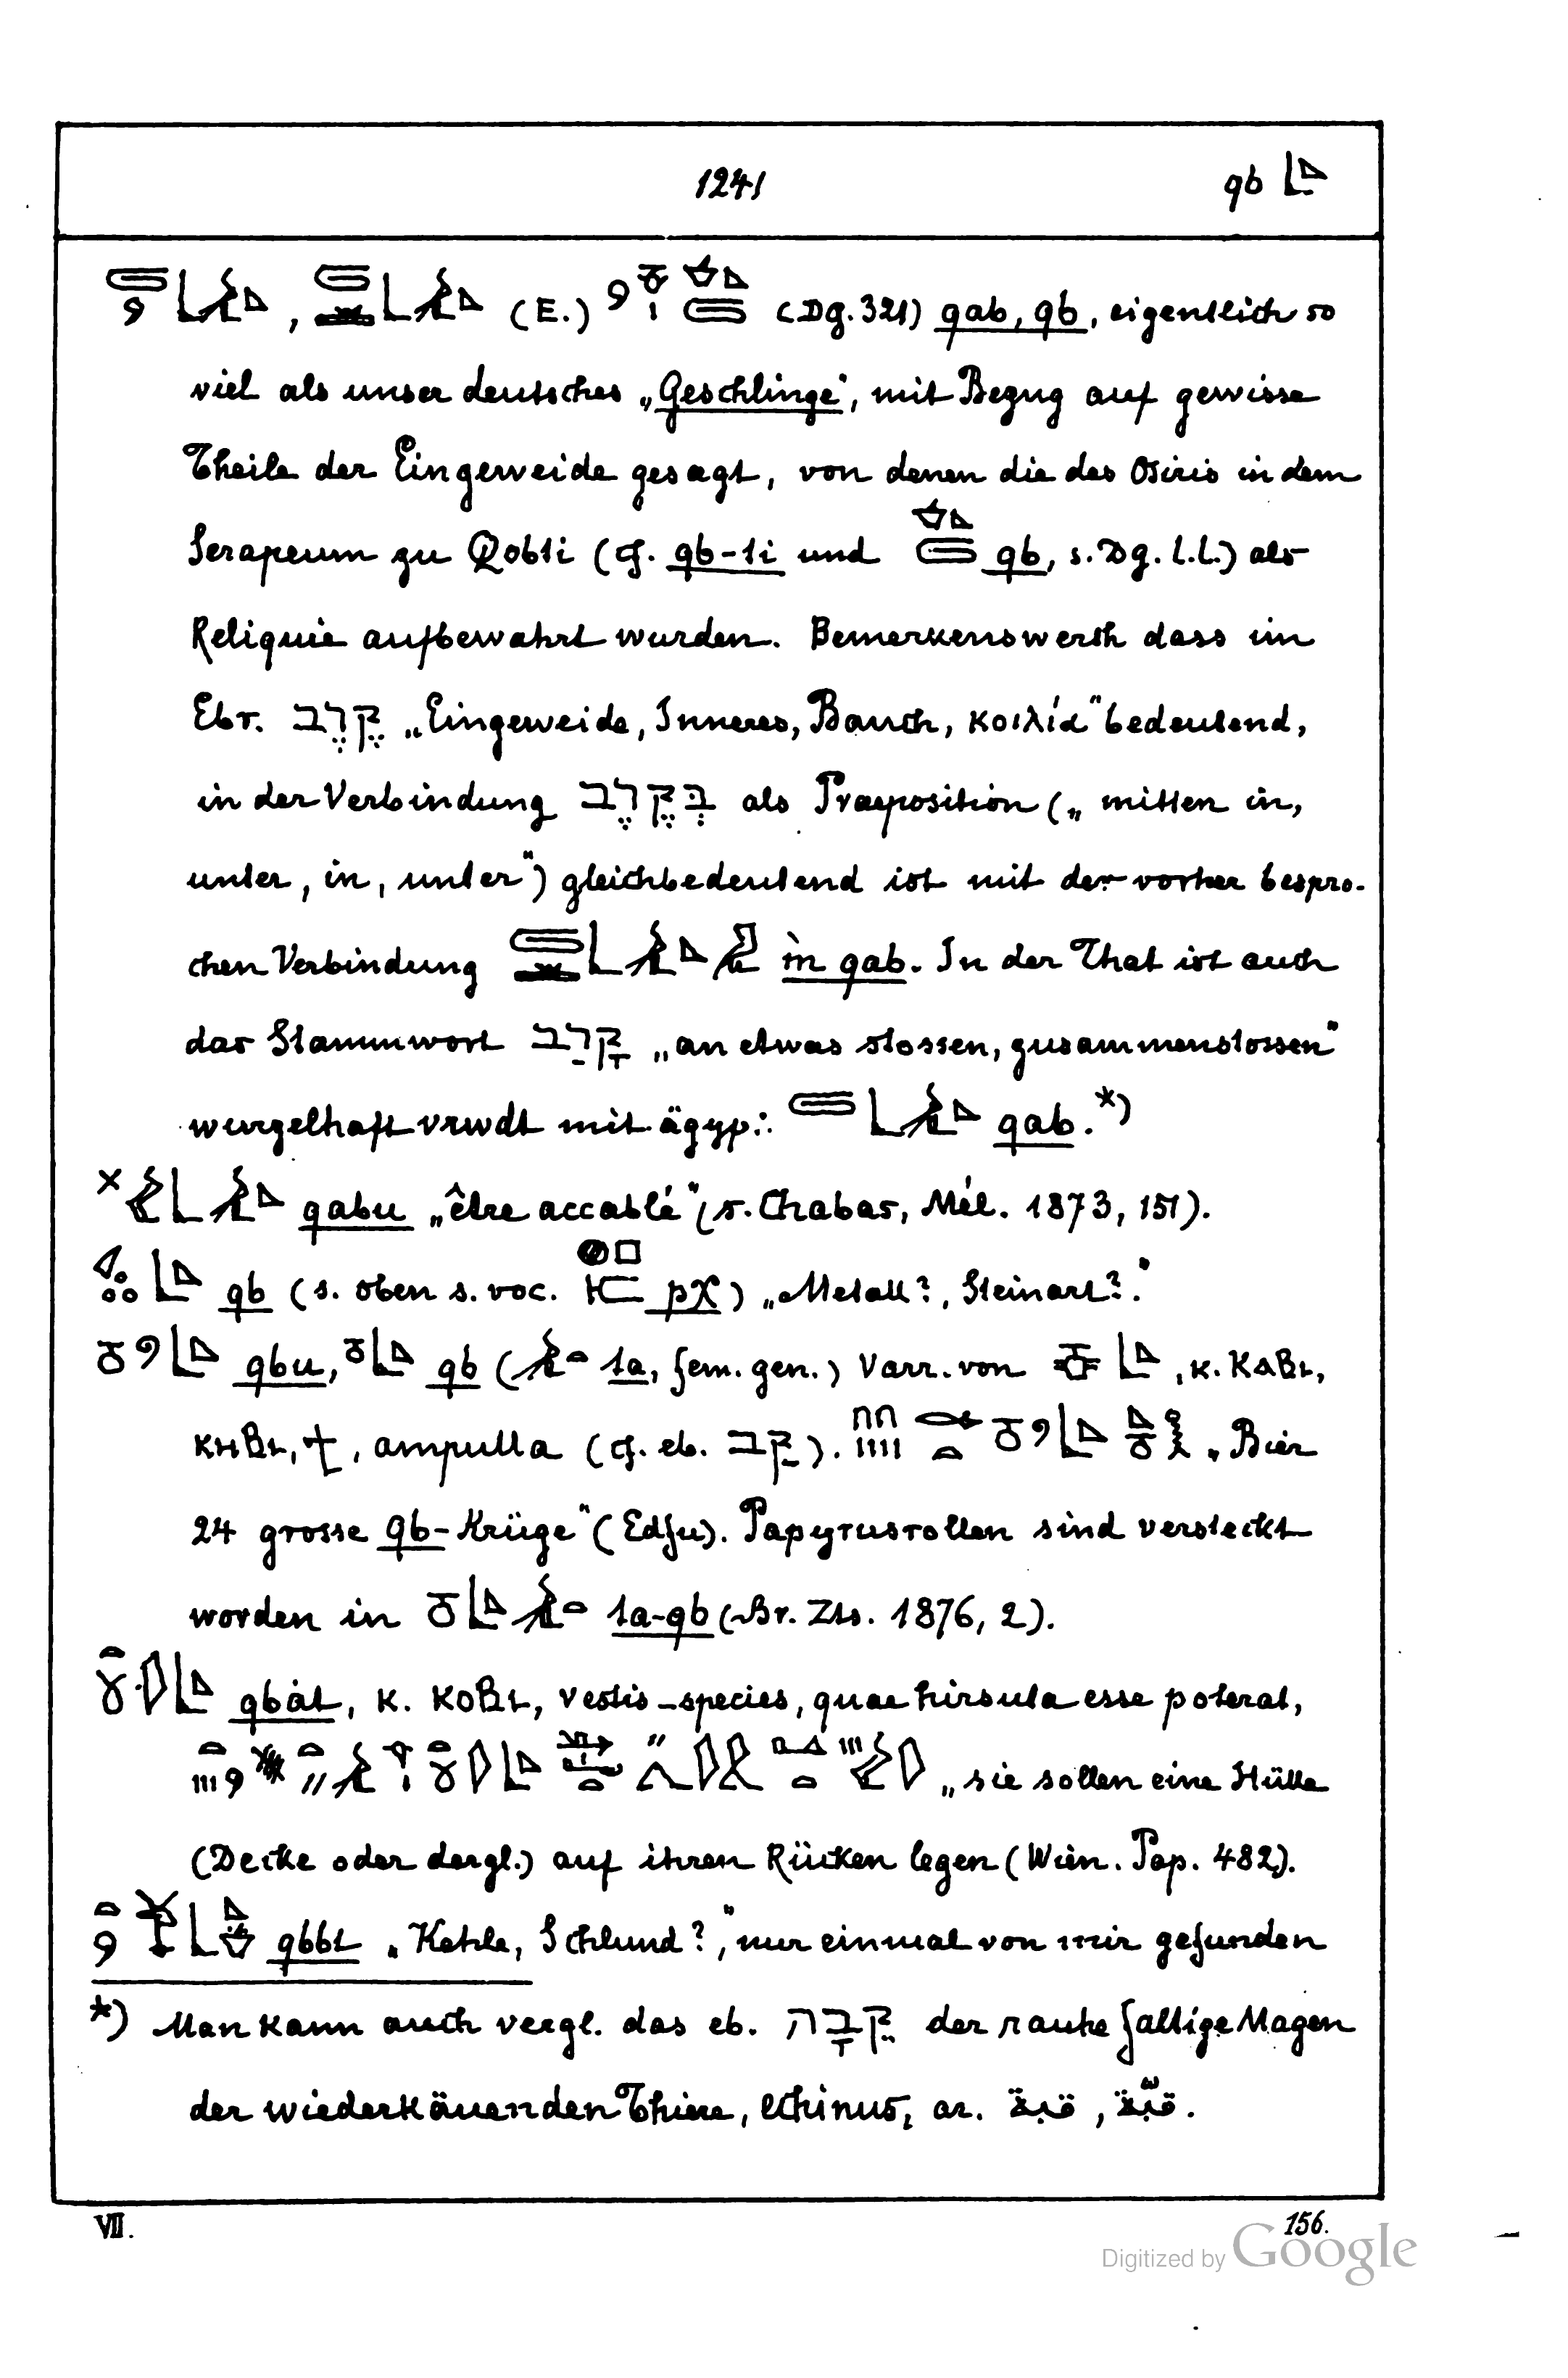 1241 qb
(E.) (Dg. 321) qab, qb, eigentlich so
viel als unser deutsches „Geschlinge“, mit Bezug auf gewisse
Theile der Eingeweide gesagt, von denen die des Osiris in dem
Serapeum zu Qobti (cf. qb-ti und qb, s. Dg. l.l.) als
Reliquie aufbewahrt wurden. Bemerkenswerth dass im
Ebr. קֶרֶב „Eingeweide, Inneres, Bauch, κοιλία“ bedeutend,
in der Verbindung בְּקֶרֶב als Praeposition („mitten in,
unter, in, unter“) gleichbedeutend ist mit der vorher bespro-
chen Verbindung m qab. In der That ist auch
das Stammwort קָרַב „an etwas stossen, zusammenstossen“
wurzelhaft vrwdt mit ägyp: qab.*)
× qabu „être accablé“ (s. Chabas, Mél. 1873, 151).
qb (s. oben s. voc. pχ) „Metall?, Steinart?“
qbu, qb (ta, fem. gen.) Varr. von , κ. ⲕⲁⲃⲓ,
ⲕⲏⲃⲓ, ϯ, ampulla (cf. eb. קַב). „Bier
24 grosse qb-Krüge“ (Edfu). Papyrusrollen sind versteckt
worden in ta-qb (Br. Zts. 1876, 2).
qbȧt, κ. ⲕⲟⲃⲓ, vestis species, quae hirsuta esse poterat,
„sie sollen eine Hülle
(Decke oder dergl.) auf ihren Rücken legen (Wien. Pap. 482).
qbbt „Kehle, Schlund?“, nur einmal von mir gefunden
*) Man kann auch vergl. das eb. קֵבָה der rauhe faltige Magen
der wiederkäuenden Thiere, echinus, ar. قبة, قبّة.
VII. 156.
Digitized by Google